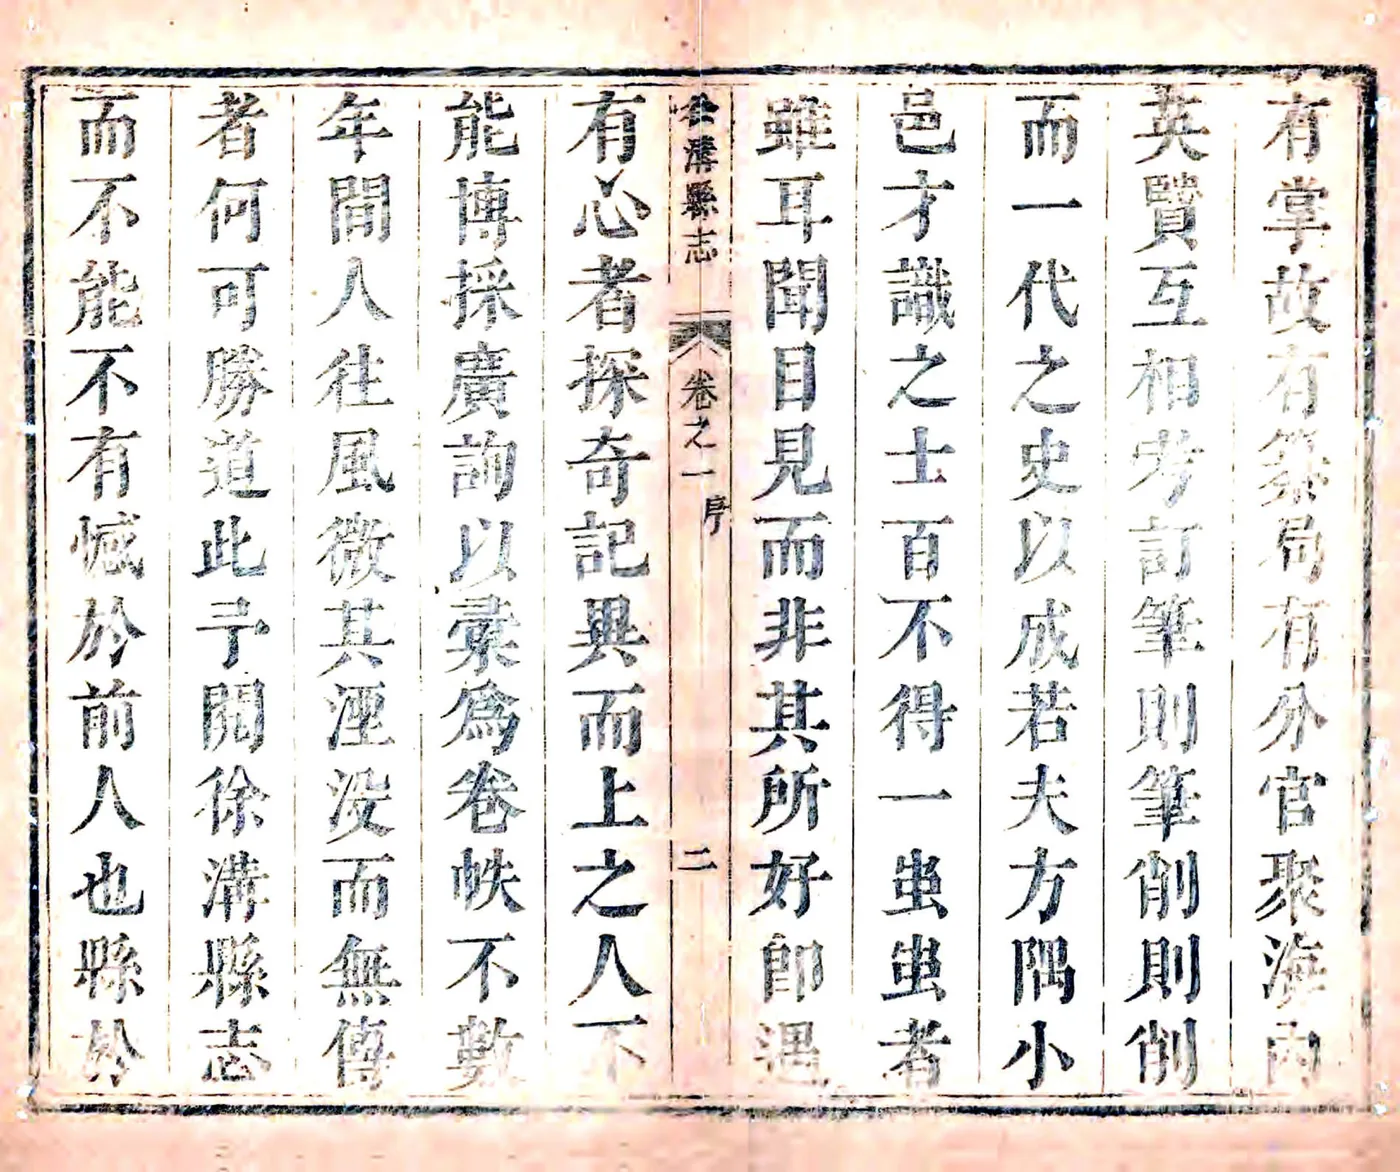 有掌故有纂局有分官聚海内
英賢互相考訂筆則筆削則削
而一代之史以成若夫方隅小
邑才識之士百不得一蚩蚩者
雖耳聞目見而非其所好卽遇
徐溝縣志
卷之一
序
二
有心者探奇記異而上之人不
能博採廣詢以彚爲卷帙不數
年間人徃風微其湮没而無傳
者何可勝道此予閱徐溝縣志
而不能不有憾於前人也縣於